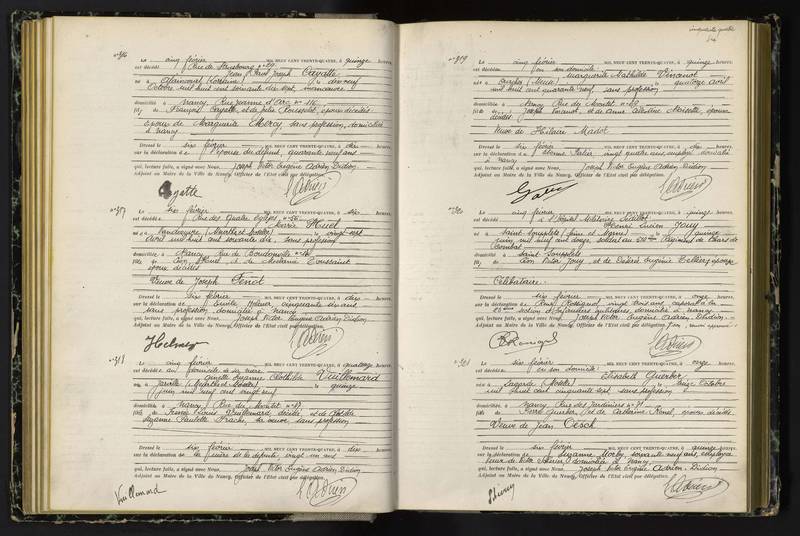 n° 316
Le cinq février MIL NEUF CENT TRENTE-QUATRE, à quinze heures,
est décédé Rue de Strasbourg n° 89
Jean Paul Joseph Cayatte
né à Alaincourt (Lorraine) le dix neuf
Octobre mil huit cent soixante dix sept, manœuvre
domicilié à Nancy, Rue Jeanne d'Arc n° 116
fils de François Cayatte, et de
époux décédés
Époux de Marguerite Mercy, sans profession, domiciliée
à Nancy
Dressé le six février MIL NEUF CENT TRENTE-QUATRE, à dix heures,
sur la déclaration de l'épouse du défunt, quarante neuf ans
qui, lecture faite, a signé avec Nous, Joseph Victor Eugène Adrien Didion
Adjoint au Maire de la Ville de Nancy, Officier de l'Etat civil par délégation.
Cayatte
n° 317
Le six février MIL NEUF CENT TRENTE-QUATRE, à six heures,
est décédée Rue des Quatre Eglises, n° 56
Marie Huel
née à Vandœuvre, (Meurthe et Moselle) le vingt sept
Avril mil huit cent soixante dix, sans profession
domiciliée à Nancy, Rue de Boudonville n°
fille de Huel et de Toussaint
époux décédés
Veuve de Joseph Finot
Dressé le six février MIL NEUF CENT TRENTE-QUATRE, à dix heures,
sur la déclaration de Emilie Helmer, cinquante six ans
sans profession domiciliée à Nancy
qui, lecture faite, a signé avec Nous, Joseph Victor Eugène Adrien Didion
Adjoint au Maire de la Ville de Nancy, Officier de l'Etat civil par délégation.
Helmer
n° 318
Le cinq février MIL NEUF CENT TRENTE-QUATRE, à quatorze heures,
est décédée au domicile de sa mère
Suzanne Clothilde Vuillemard
née à Jarville (Meurthe et Moselle) le quinze
Juin mil neuf cent vingt neuf
domiciliée à Nancy, Rue du Montet n° 87
fille de Louis Vuillemard, décédé, et de
Suzanne Paulette sa veuve, sans profession
Dressé le six février MIL NEUF CENT TRENTE-QUATRE, à dix heures,
sur la déclaration de la mère de la défunte, vingt six ans
qui, lecture faite, a signé avec Nous, Joseph Victor Eugène Adrien Didion
Adjoint au Maire de la Ville de Nancy, Officier de l'Etat civil par délégation.
Vuillemard
cinquante quatre
54
n° 319
Le cinq février MIL NEUF CENT TRENTE-QUATRE, à quinze heures,
est décédée en son domicile
Marguerite Mathilde Vinanot
née à (Meuse) le quatorze avril
mil huit cent quarante neuf, sans profession
domiciliée à Nancy, Rue du Montet n°
fille de Joseph Vinanot, et de Anne époux
décédés
Veuve de Hilaire Madot
Dressé le six février MIL NEUF CENT TRENTE-QUATRE, à dix heures,
sur la déclaration de vingt quatre ans, employé domicilié
à Nancy
qui, lecture faite, a signé avec Nous, Joseph Victor Eugène Adrien Didion
Adjoint au Maire de la Ville de Nancy, Officier de l'Etat civil par délégation.
n° 320
Le cinq février MIL NEUF CENT TRENTE-QUATRE, à quinze heures,
est décédé à l'Hôpital Militaire Sédillot
Henri Lucien Jouy
né à Saint-Soupplets (Seine et Marne) le quinze
juin mil neuf cent douze, soldat au Régiment de Chars de
Combat
domicilié à Saint Soupplets
fils de Léon Victor Jouy et de Désirée Eugénie Tellier, époux
Célibataire
Dressé le six février MIL NEUF CENT TRENTE-QUATRE, à onze heures,
sur la déclaration de René Rossignol, vingt trois ans, caporal à la
Section d'Infirmiers Militaires, domicilié à Nancy
qui, lecture faite, a signé avec Nous, Joseph Victor Eugène Adrien Didion
Adjoint au Maire de la Ville de Nancy, Officier de l'Etat civil par délégation.
n° 321
Le six février MIL NEUF CENT TRENTE-QUATRE, à onze heures,
est décédée en son domicile
Elisabeth Guerber
née à Lagarde (Moselle) le treize Octobre
mil huit cent cinquante sept, sans profession
domiciliée à Nancy, Rue des Jardiniers n° 71
fille de Pierre Guerber, et de Catherine époux décédés
Veuve de Jean Cesch
Dressé le six février MIL NEUF CENT TRENTE-QUATRE, à quinze heures,
sur la déclaration de Suzanne soixante neuf ans, employée
domiciliée à Nancy
qui, lecture faite, a signé avec Nous, Joseph Victor Eugène Adrien Didion
Adjoint au Maire de la Ville de Nancy, Officier de l'Etat civil par délégation.